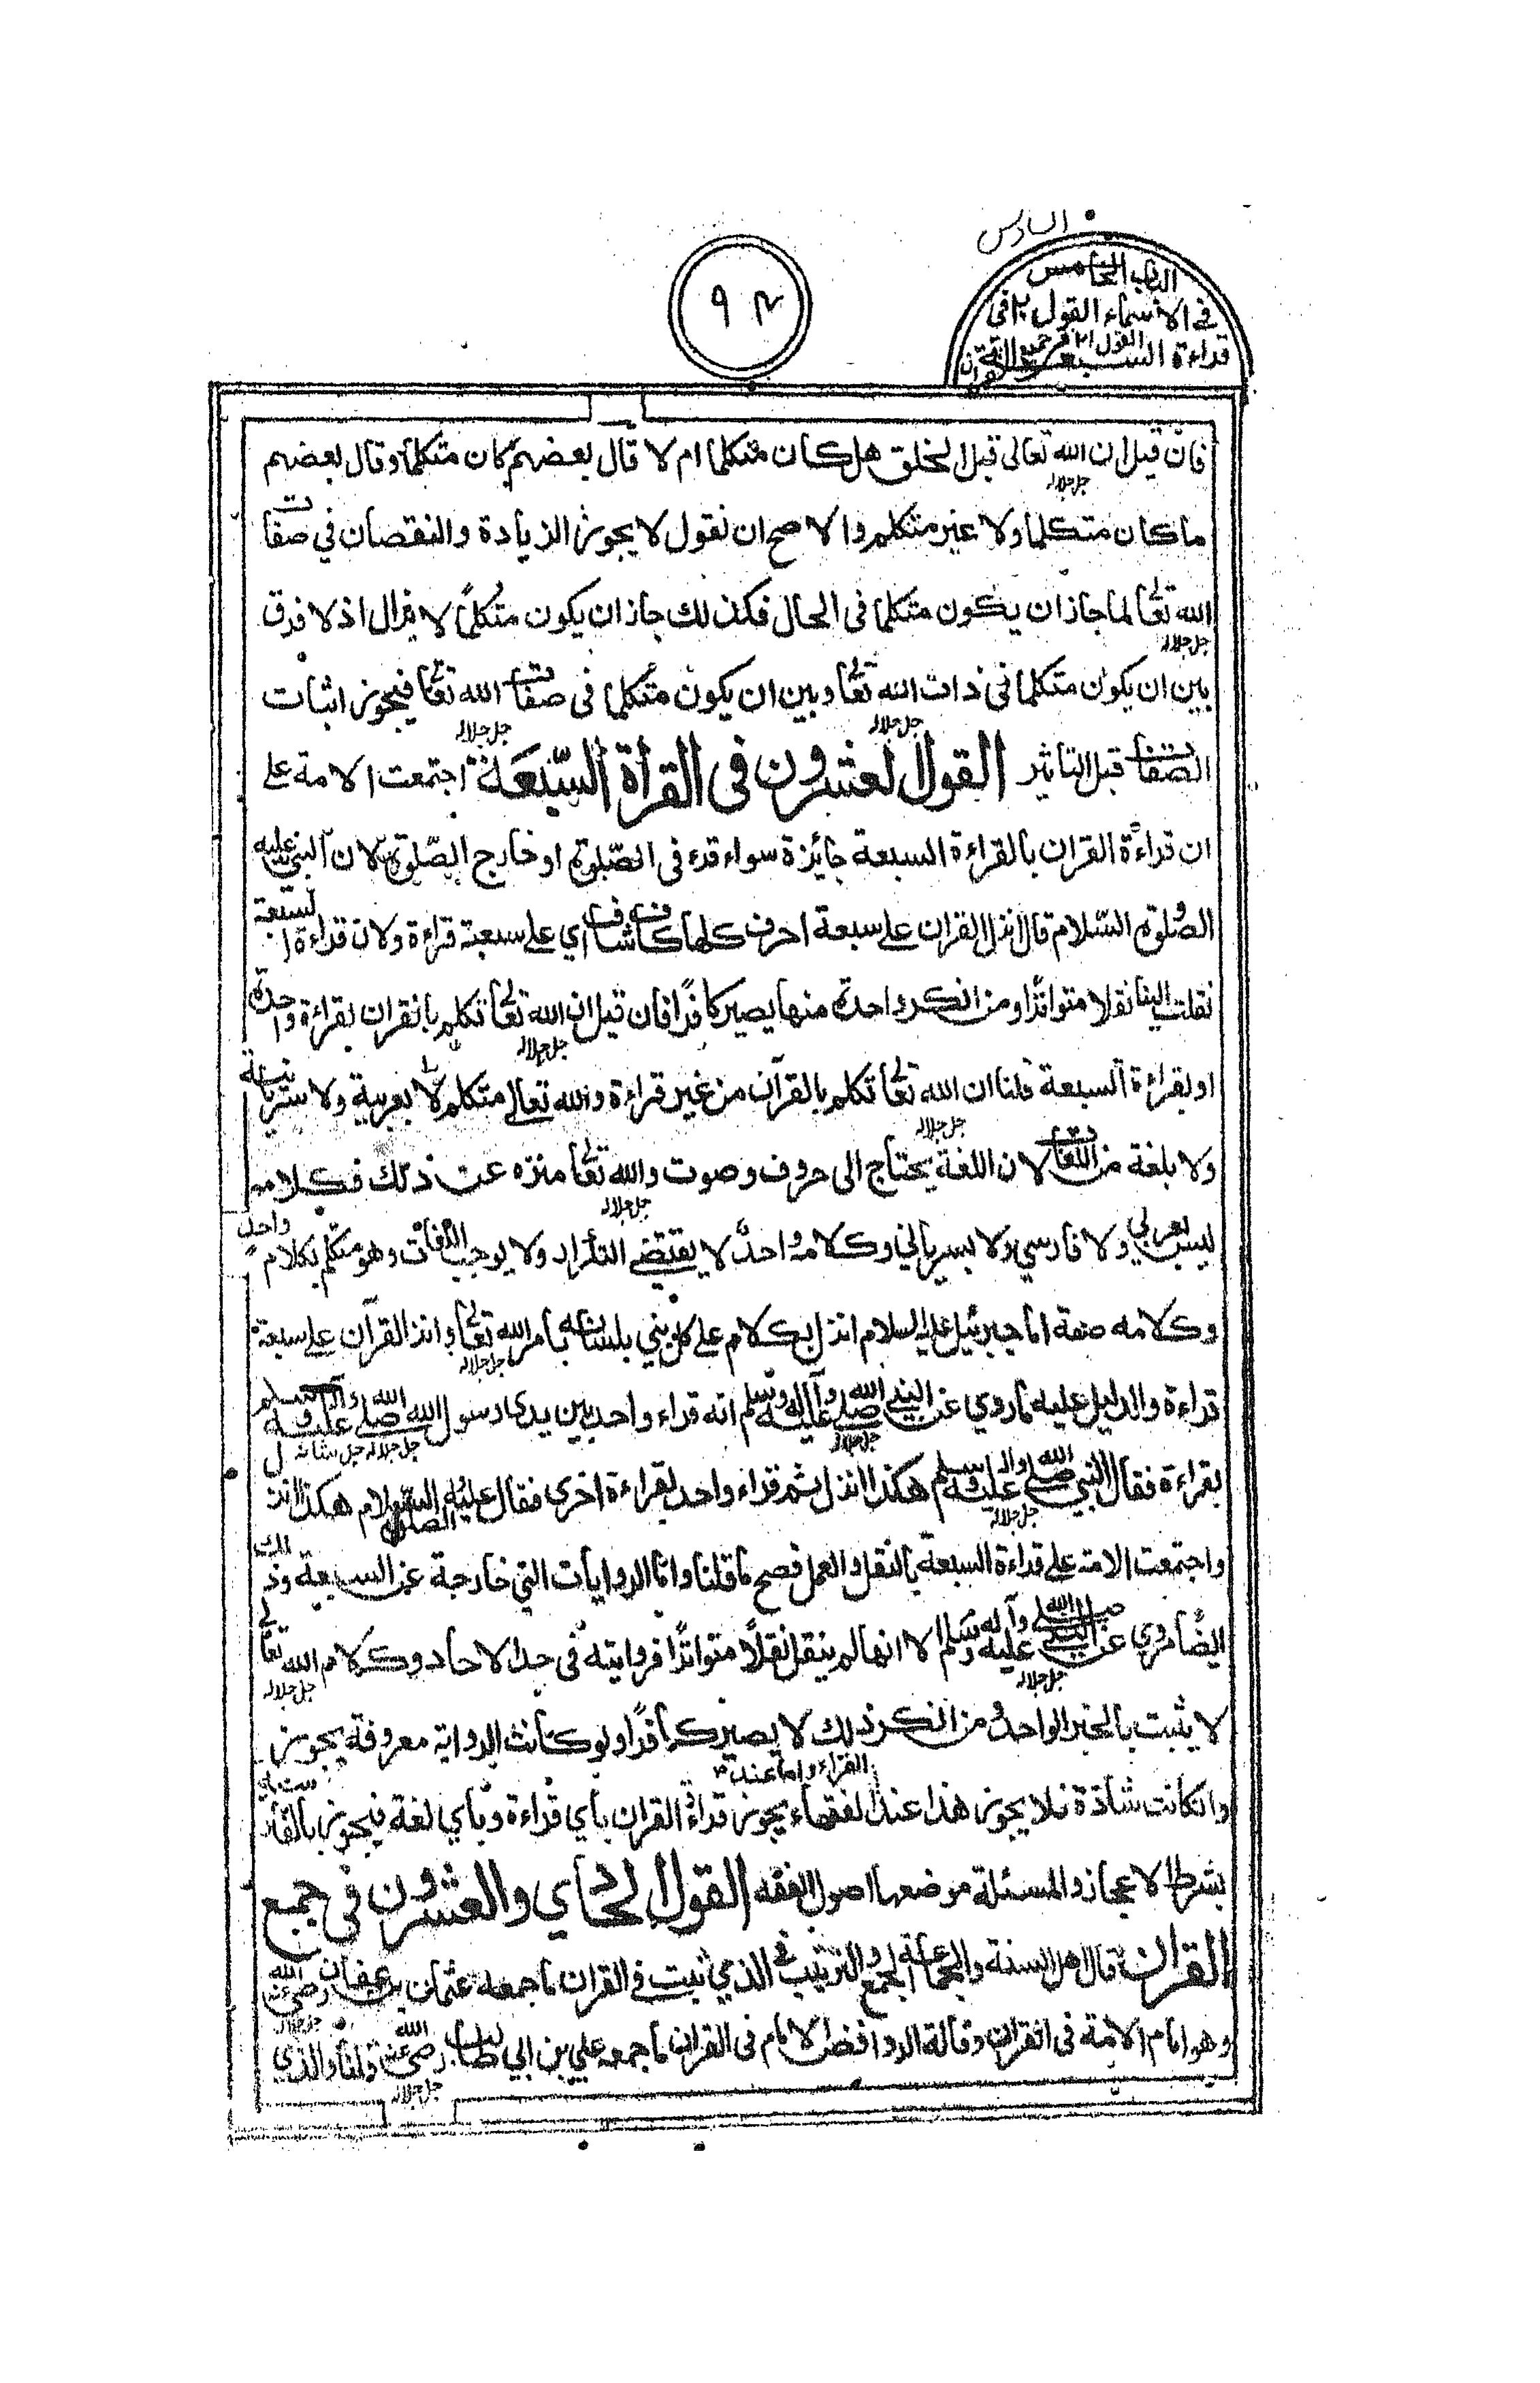 السادس
الباب الخامس
في الاسماء القول ٢٠ في
القول ٢١ في جمع القرآن
قراءة السبعة
٩٢
فان قيل ان الله تعالى قبل الخلق هل كان متكلما ام لا قال بعضهم كان متكلما وقال بعضهم
جل جلاله
ما كان متكلما ولا غير متكلم والاصح ان نقول لا يجوز الزيادة والنقصان في صفات
الله تعالى لما جاز ان يكون متكلما في الحال فكذلك جاز ان يكون متكلما لا يزال اذ لا فرق
جل جلاله
بين ان يكون متكلما في ذات الله تعالى وبين ان يكون متكلما في صفات الله تعالى فيجوز اثبات
جل جلاله جل جلاله
الصفات قبل التاثير القول العشرون في القرأة السبعة اجتمعت الامة على
ان قراءة القران بالقراءة السبعة جائزة سواء قرء في الصلوة او خارج الصلوة لان النبي عليه
الصلوة والسلام قال انزل القران على سبعة احرف كلها كاف شاف اي على سبعة قراءة ولان قراءة السبعة
نقلت الينا نقلا متواترا ومن انكر واحدة منها يصير كافرا فان قيل ان الله تعالى تكلم بالقران بقراءة واحدة
جل جلاله
او بقراءة السبعة قلنا ان الله تعالى تكلم بالقرآن من غير قراءة والله تعالى متكلم لا بعربية ولا سريانية
جل جلاله
ولا بلغة من اللغات لان اللغة يحتاج الى حروف وصوت والله تعالى منزه عن ذلك فكلامه
جل جلاله
ليس بعربي ولا فارسي ولا بسرياني وكلامه واحد لا يقتضي التكرار ولا يوجب وهو متكلم بكلام واحد
وكلامه صفة اما جبرئيل عليه السلام انزل بكلام على كل نبي بلسانه بامر الله تعالى وانزل القرآن على سبعة
جل جلاله
قراءة والدليل عليه ما روي عن النبي صلى الله عليه وآله وسلم انه قراء واحد بين يدي رسول الله صلى الله عليه وآله وسلم
جل جلاله جل جلاله جل شانه
بقراءة فقال النبي صلى الله عليه واله وسلم هكذا انزل ثم قراء واحد بقراءة اخرى فقال عليه الصلوة والسلام هكذا انزل
جل جلاله
واجتمعت الامة على قراءة السبعة بالنقل والعمل فصح ما قلنا واما الروايات التي خارجة عن السبعة وذلك
ايضا مروي عن النبي صلى الله عليه وآله وسلم الا انها لم ينقل نقلا متواترا فروايته في حد الاحاد وكلام الله تعالى
جل جلاله جل جلاله
لا يثبت بالخبر الواحد ومن انكر ذلك لا يصير كافرا ولو كانت الرواية معروفة يجوز
القراء واما عند
وان كانت شاذة فلا يجوز هذا عند الفقهاء يجوز قراءة القران باي قراءة وباي لغة فيجوز بالفارسية
بشرط الاعجاز والمسئلة موضعها اصول الفقه القول الحادي والعشرون في جمع
القران قال اهل السنة والجماعة الجمع والترتيب في الذي ثبت في القران ما جمعه عثمان بن عفان رضي الله عنه
جل جلاله
وهو امام الامة في القران وقالة الروافض الامام في القران ما جمعه علي بن ابي طالب رضي الله عنه قلنا والذي
جل جلاله